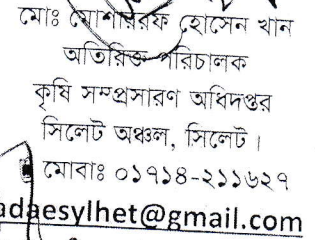 মোঃ মোশাররফ হোসেন খান
অতিরিক্ত পরিচালক
কৃষি সম্প্রসারণ অধিদপ্তর
সিলেট অঞ্চল, সিলেট।
মোবাঃ ০১৭১৪-২১১৬২৭
adaesylhet@gmail.com